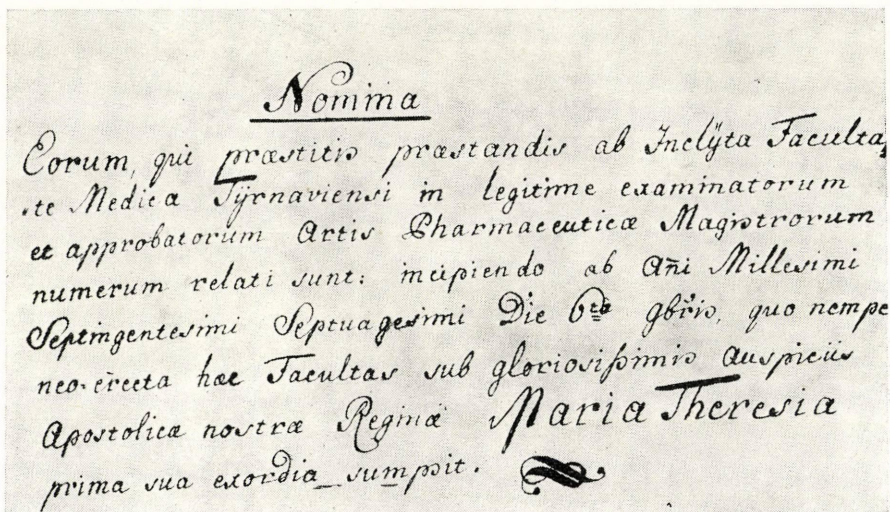 Nomina
Eorum, qui præstitis præstandis ab Inclÿta Faculta,
,te Medica Tÿrnaviensi in legitime examinatorum
et approbatorum Artis Pharmaceuticæ Magistrorum
numerum relati sunt: incipiendo ab Añi Millesimi
Septingentesimi Septuagesimi Die 6ta 9bris, quo nempe
neo-erecta hæc Facultas sub gloriosißimis auspiciis
Apostolicæ nostræ Reginæ Maria Theresia
prima sua exordia sumpsit.